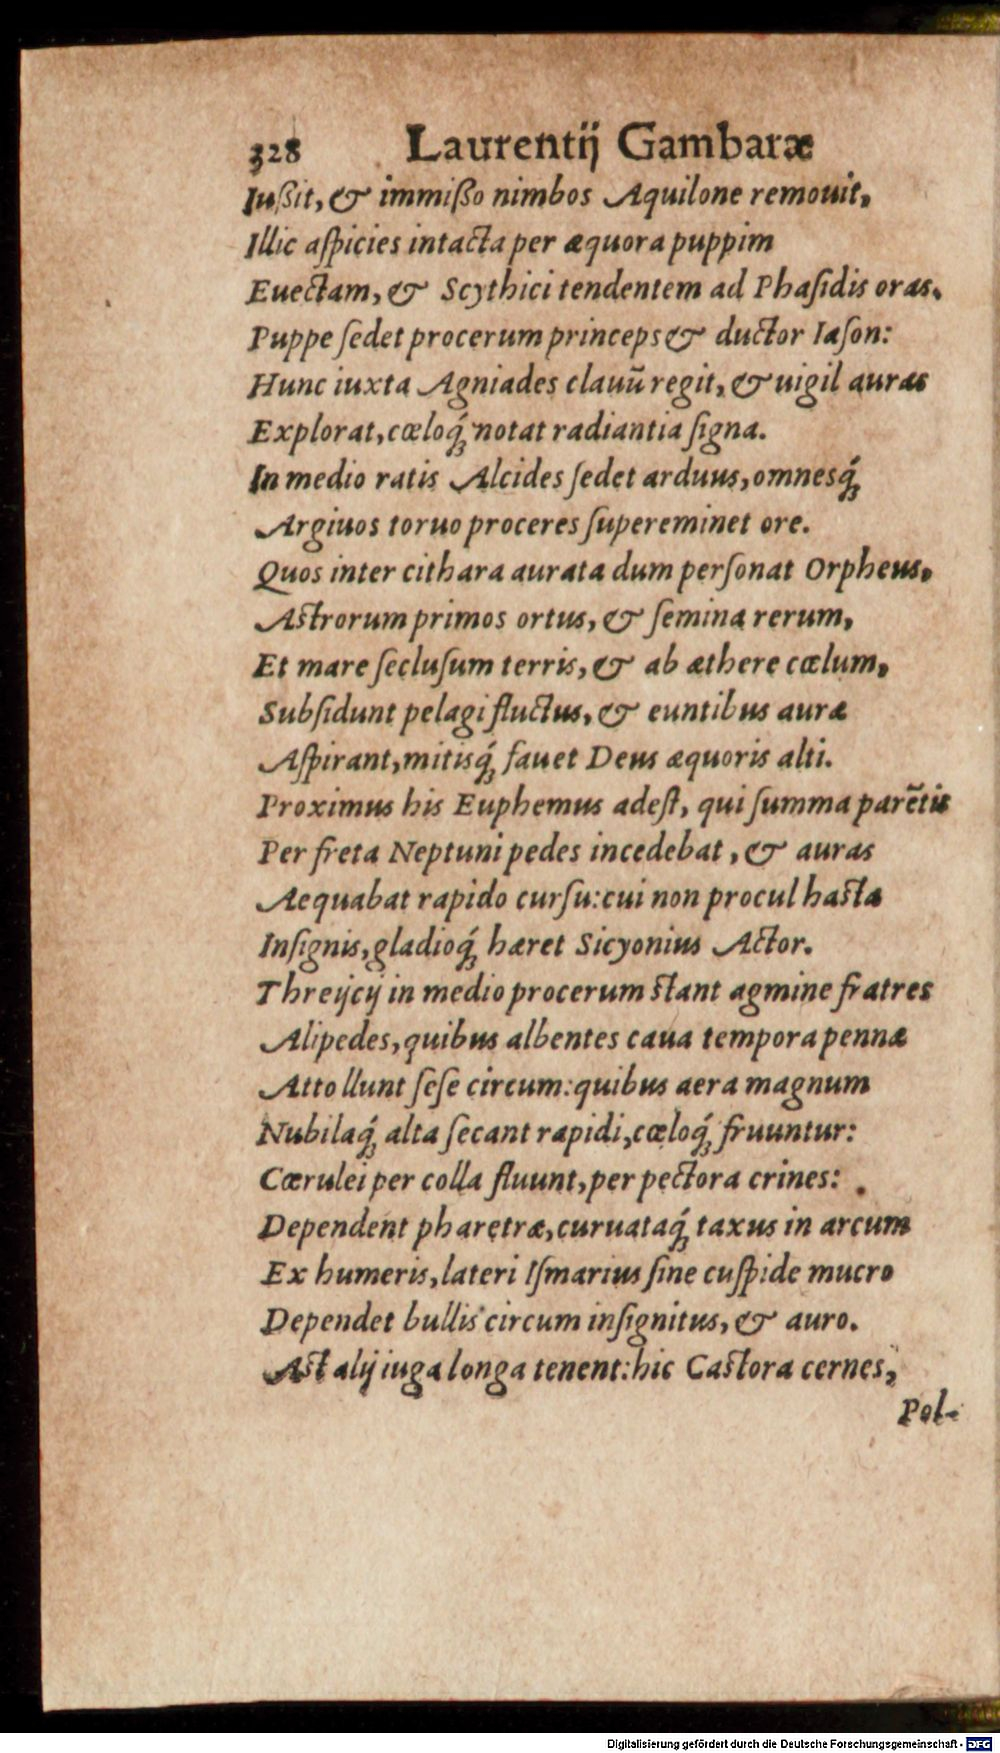 328 Laurentij Gambaræ
Iußit, & immißo nimbos Aquilone remouit,
Illic aſpicies intacta per æquora puppim
Euectam, & Scythici tendentem ad Phaſidis oras.
Puppe ſedet procerum princeps & ductor Iaſon:
Hunc iuxta Agniades clauū regit, & uigil auras
Explorat, cœloq́; notat radiantia ſigna.
In medio ratis Alcides ſedet arduus, omnesq́;
Argiuos toruo proceres ſupereminet ore.
Quos inter cithara aurata dum perſonat Orpheus,
Astrorum primos ortus, & ſemina rerum,
Et mare ſecluſum terris, & ab æthere cœlum,
Subſidunt pelagi fluctus, & euntibus auræ
Aſpirant, mitisq́; fauet Deus æquoris alti.
Proximus his Euphemus adeſt, qui ſumma parētis
Per freta Neptuni pedes incedebat, & auras
Aequabat rapido curſu: cui non procul hasta
Inſignis, gladioq́; hæret Sicyonius Actor.
Threijcij in medio procerum stant agmine fratres
Alipedes, quibus albentes caua tempora pennæ
Attollunt ſeſe circum: quibus aera magnum
Nubilaq́; alta ſecant rapidi, cœloq́; fruuntur:
Cœrulei per colla fluunt, per pectora crines:
Dependent pharetræ, curuataq́; taxus in arcum
Ex humeris, lateri Iſmarius ſine cuſpide mucro
Dependet bullis circum inſignitus, & auro.
Ast alij iuga longa tenent: hic Castora cernes,
Pol-
Digitalisierung gefördert durch die Deutsche Forschungsgemeinschaft - DFG